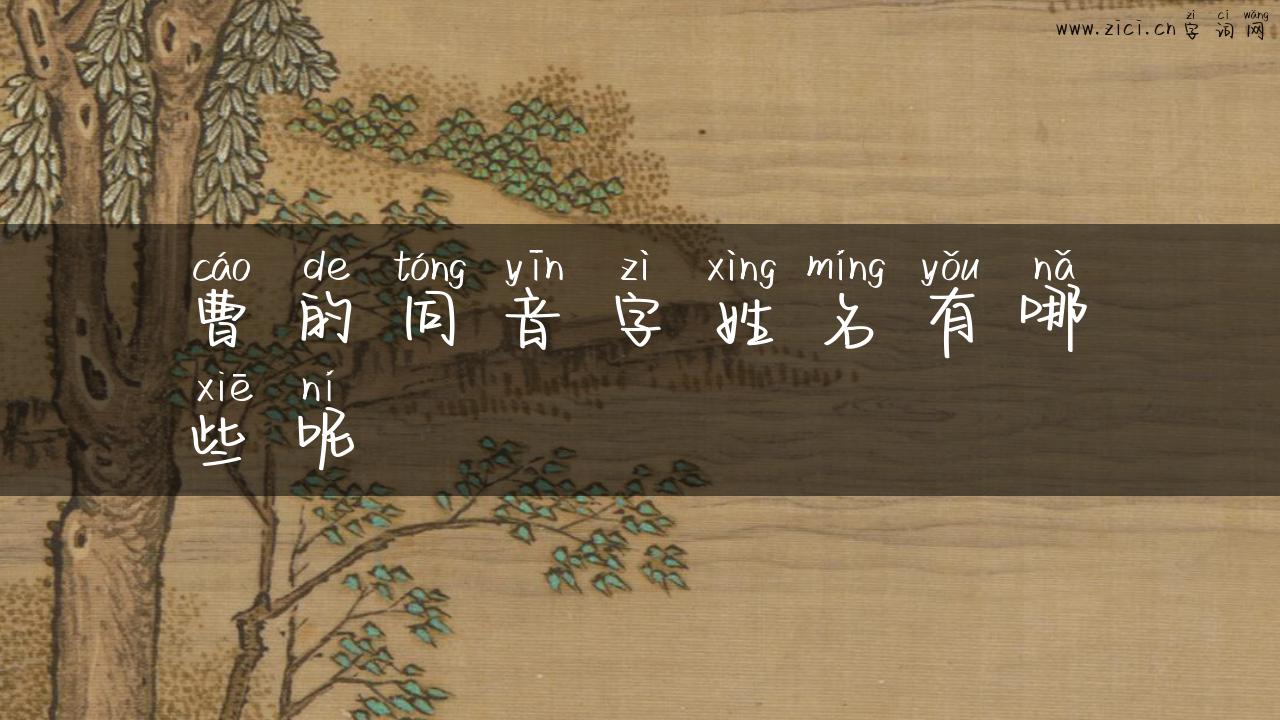 zì cí wǎng
www.zici.cn 字词网
cáo de tóng yīn zì xìng míng yǒu nǎ
曹的同音字姓名有哪
xiē ní
些呢